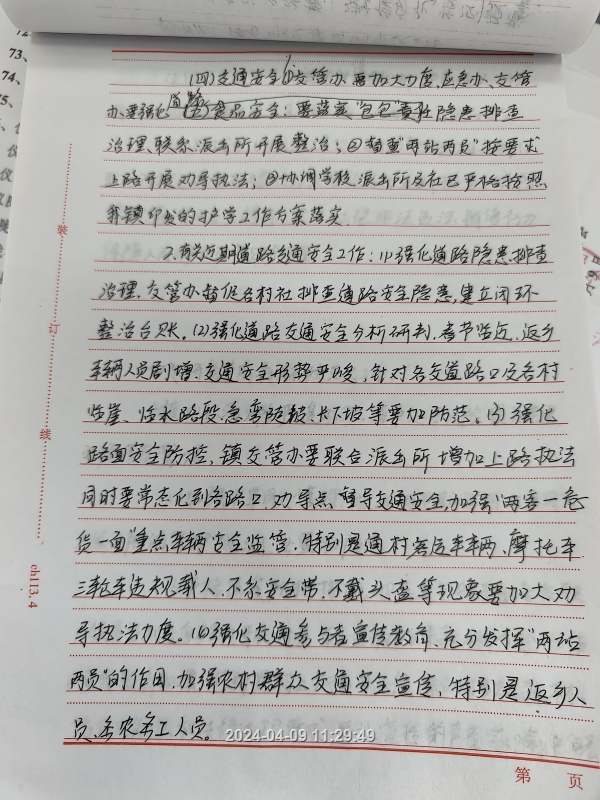 73、
74、
75、
(四)交通安全:①交管办要加大力度,应急办、交管
办要强化道路(五)食品安全:要落实"包包"责任隐患排查
治理,联系派出所开展整治;②督查"两站两员"按要求
上路开展劝导执法;③协调学校、派出所及社区严格按照
我镇印发的护学工作方案落实.
2.有关近期道路交通安全工作:(1)强化道路隐患排查
治理.交管办督促各村社排查道路安全隐患,建立闭环
整治台账。(2)强化道路交通安全分析研判,春节临近,返乡
车辆人员剧增,交通安全形势严峻,针对各交道路口及各村
临崖、临水路段、急弯陡坡、长下坡等要加防范。(3)强化
路面安全防控,镇交管办要联合派出所增加上路执法
同时要常态化到各路口、劝导点,督导交通安全,加强"两客一危
货一面"重点车辆安全监管.特别是通村客运车辆、摩托车
三轮车违规载人、不系安全带、不戴头盔等现象要加大劝
导执法力度。(4)强化交通参与者宣传教育,充分发挥"两站
两员"的作用,加强农村群众交通安全宣传,特别是返乡人
员、务农务工人员。
装
订
线
ch113.4
2024-04-09 11:29:49
第 页